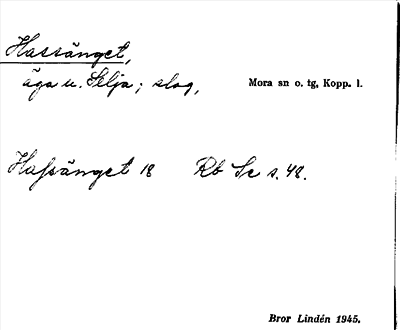 Hassänget,
äga u. Selja; slog,
Mora sn o. tg, Kopp. l.
Hafsänget 18 Rb Se s. 48.
Bror Lindén 1945.